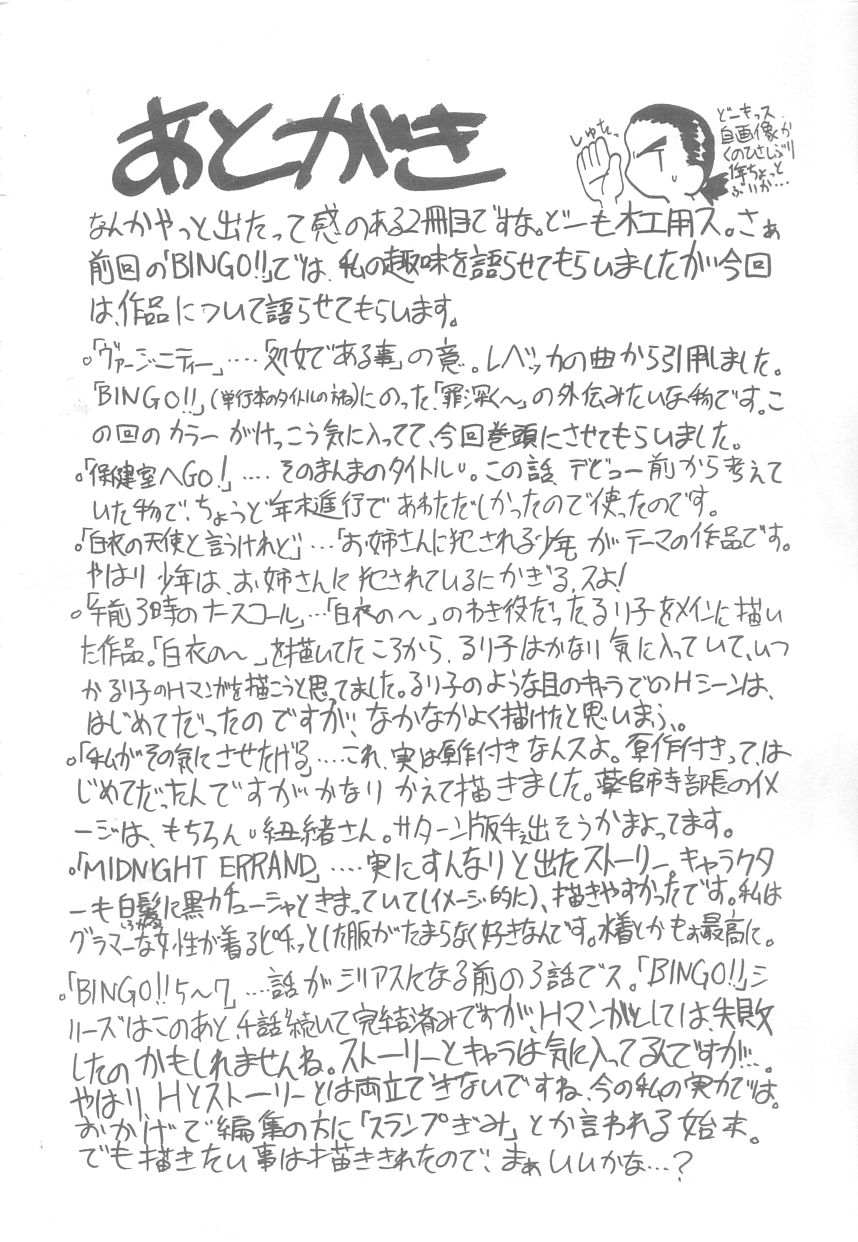 あとがき
しゅたっ
どーもっス
自画像か
くのひさしぶり
なんかやっと出たって感のある2冊目ですな。どーも木工用ス。さぁ
前回の「BINGO!!」では、私の趣味を語らせてもらいましたが今回
は、作品について語らせてもらいます。
○「ヴァージニティー」‥‥「処女である事」の意。レベッカの曲から引用しました。
「BINGO!!」(単行本のタイトルの方ね)にのった「罪深く〜」の外伝みたいな物です。こ
の回のカラーがけっこう気に入ってて、今回巻頭にさせてもらいました。
○「保健室へGO!」‥‥そのまんまのタイトル。この話、デビュー前から考えて
いた物で、ちょうど年末進行であわただしかったので使ったのです。
○「午前3時のナースコール」‥‥「白衣の〜」のわき役だったるり子をメインに描い
た作品。「白衣の〜」を描いてたころから、るり子はかなり気に入っていて、いつ
かるり子のHマンガを描こうと思ってました。るり子のような目のキャラでのHシーンは、
はじめてだったのですが、なかなかよく描けたと思いまふ。
○「私がその気にさせたげる」‥‥これ、実は原作付きなんスよ。原作付きっては
じめてだったんですがかなりかえて描きました。薬師寺部長のイメ
ージは、もちろん紐緒さん。サターン版手ぇ出そうかまよってます。
○「MIDNIGHT ERRAND」‥‥実にすんなりと出たストーリー。キャラクタ
ーも白髪に黒カチューシャときまっていて(イメージ的に)、描きやすかったです。私は
グラマーな女性が着るピチッとした服がたまらなく好きなんです。水着とかもぉ最高に。
○「BINGO!!5〜7」‥‥話がシリアスになる前の3話でス。「BINGO!!」シ
リーズはこのあと、4話続いて完結済みですが、Hマンガとしては、失敗
したのかもしれませんね。ストーリーとキャラは気に入ってるんですが…。
やはり、Hとストーリーとは両立できないですね、今の私の実力では。
おかげで編集の方に「スランプぎみ」とか言われる始末。
でも描きたい事は描ききれたので、まぁいいかな…?